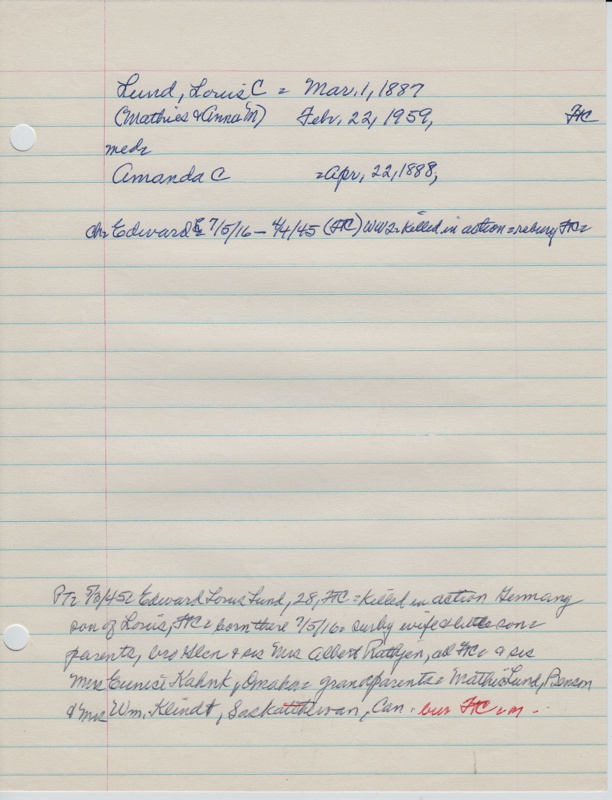 Lund, Louis C = Mar. 1, 1887
(Mathies & Anna M) Feb. 22, 1959, FtC
med=
Amanda C = Apr, 22, 1888,
ch= Edward L= 7/5/16 - 4/4/45 (FtC) WW2= Killed in action = rebury FtC=
PT= 5/3/45= Edward Louis Lund, 28, FtC = Killed in action Germany
son of Louis, FtC = born there 7/5/16= surby wife & little son=
parents, bro Glen & sis Mrs Albert Rathjen, all FtC= & sis
Mrs Eunice Kahnk, Omaha= grandparents= Mathis Lund, Benson
& Mrs Wm. Kleindt, Saskatchewan, Can. bur FtC =